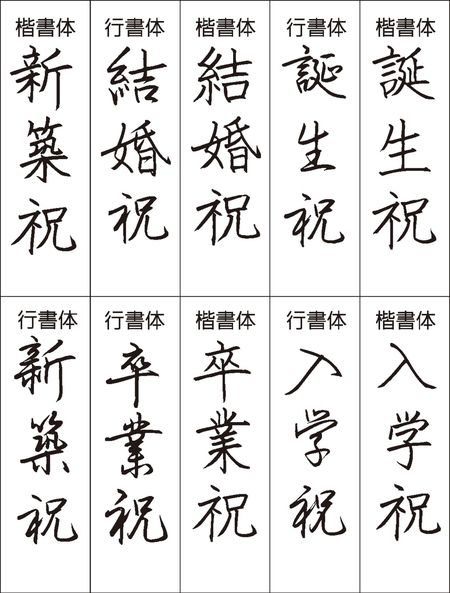 楷書体
誕生祝
行書体
誕生祝
楷書体
結婚祝
行書体
結婚祝
楷書体
新築祝
楷書体
入学祝
行書体
入学祝
楷書体
卒業祝
行書体
卒業祝
行書体
新築祝